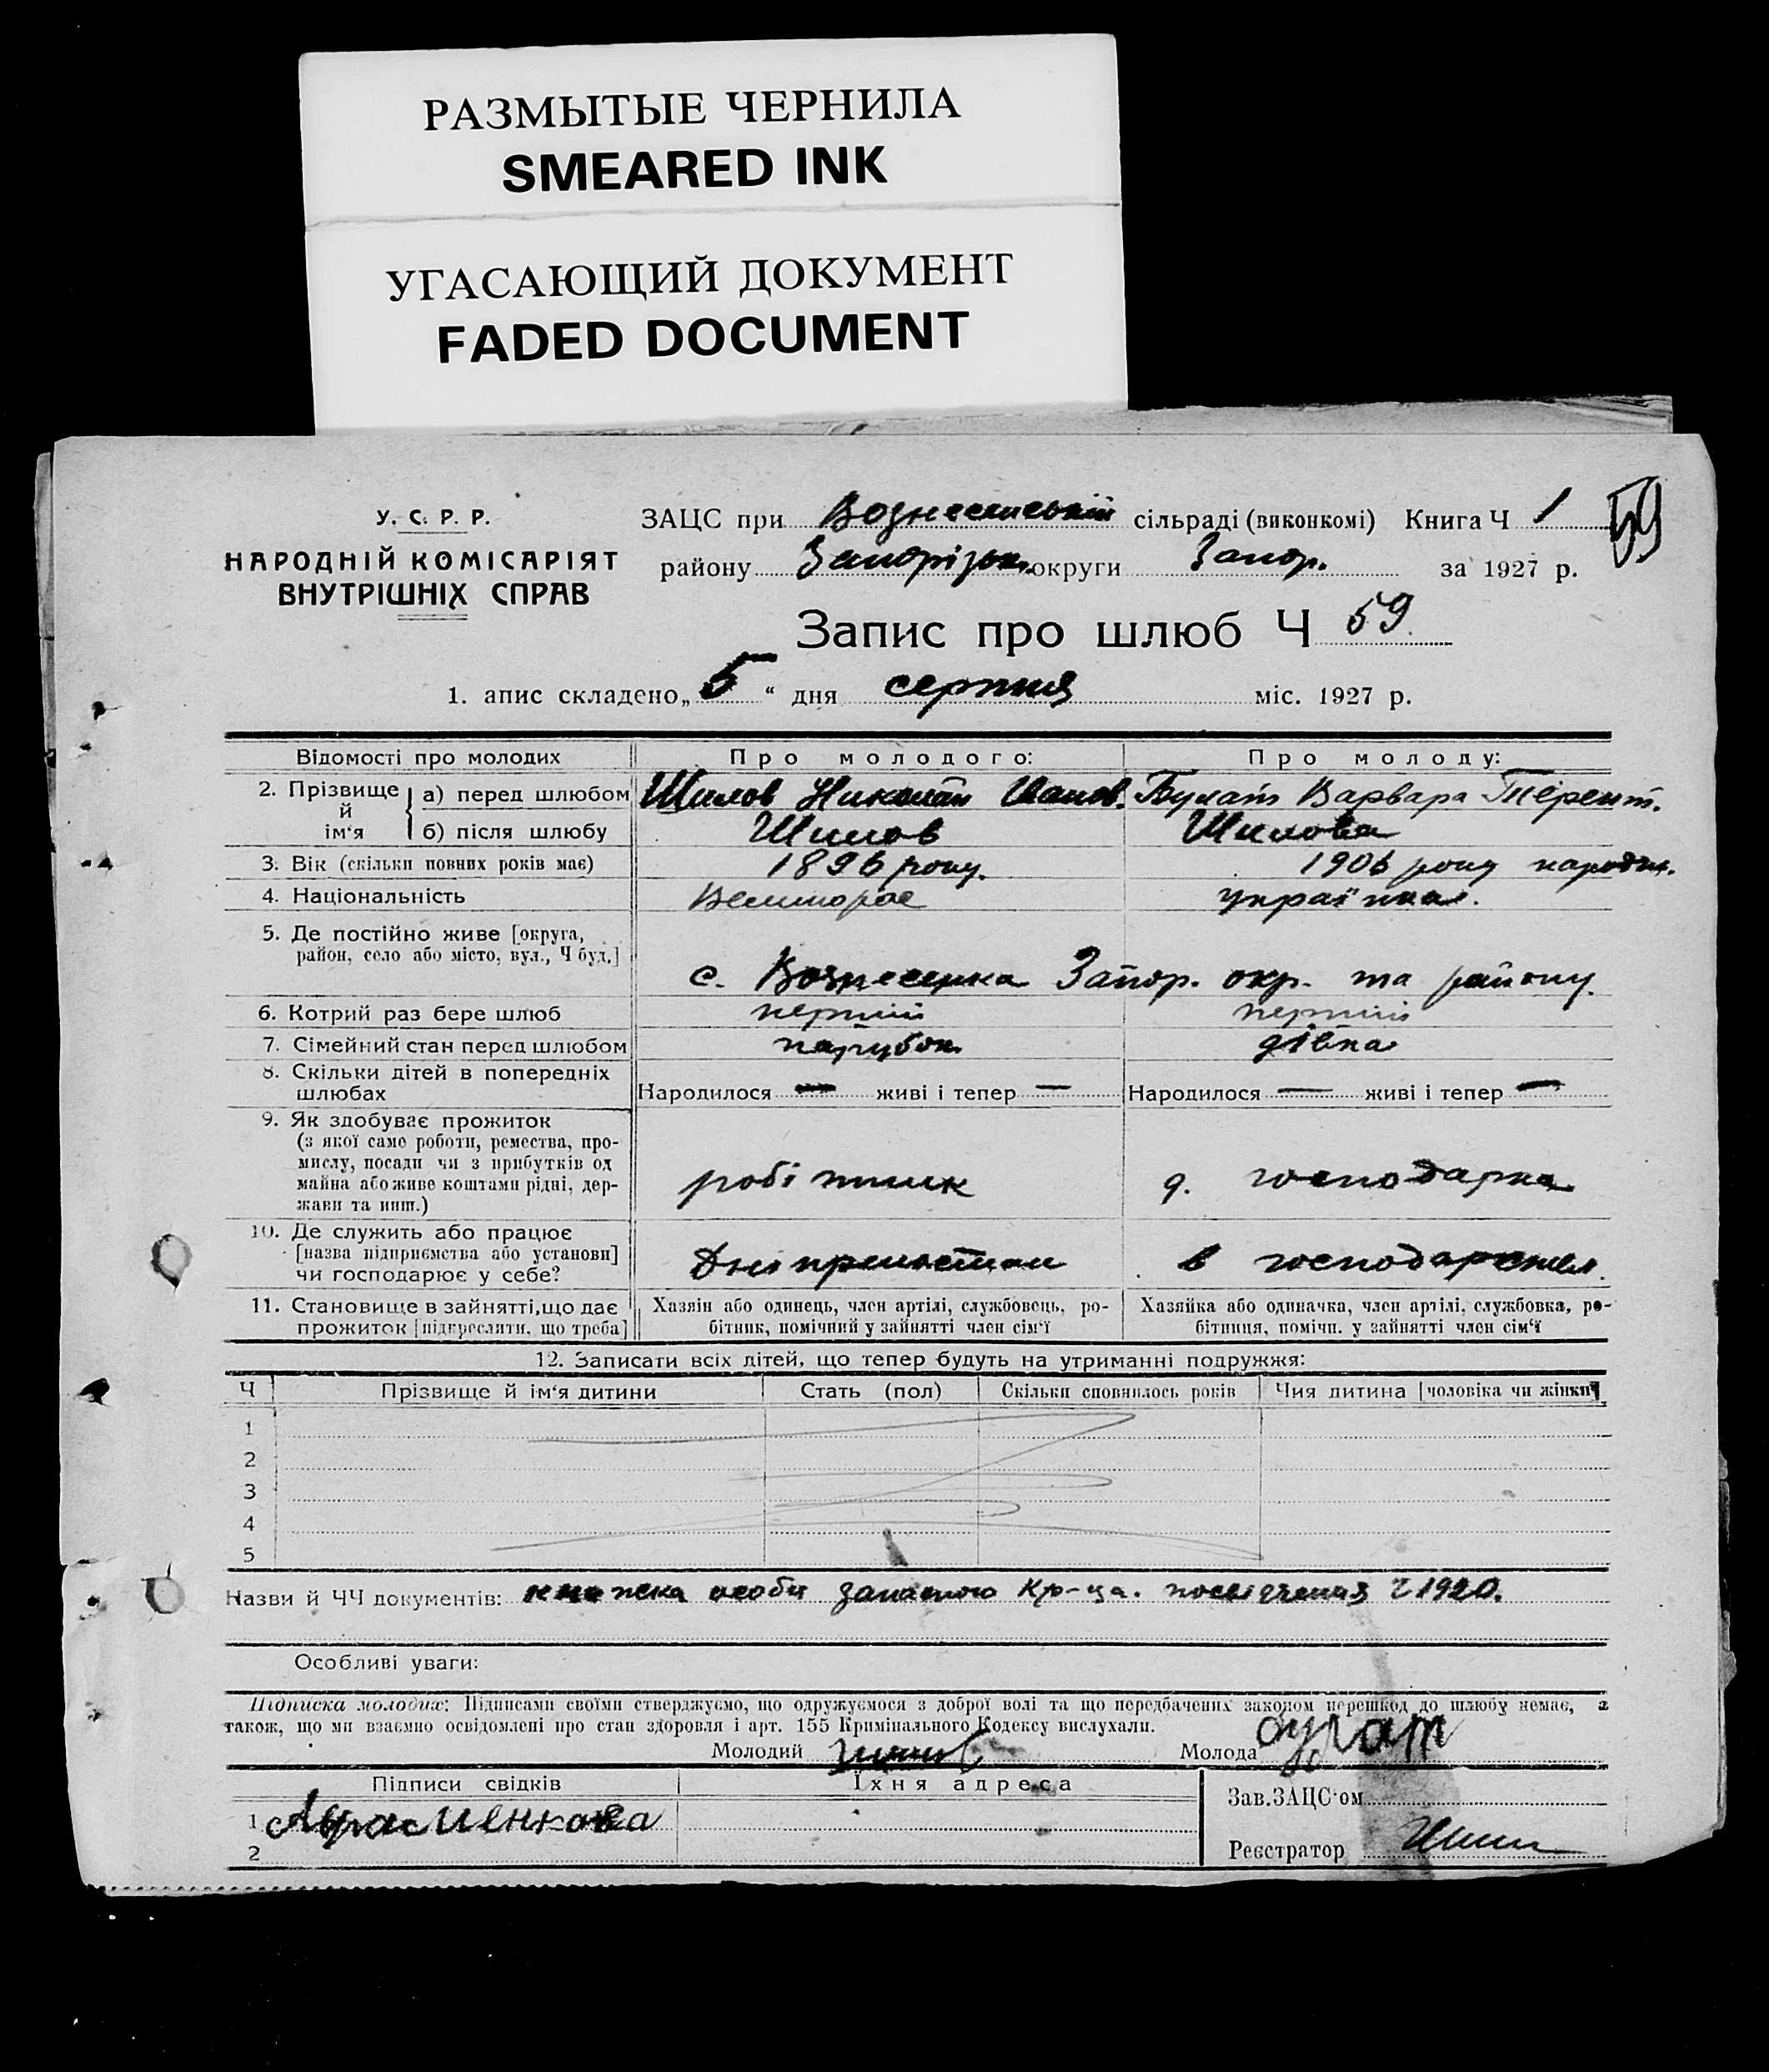 РАЗМЫТЫЕ ЧЕРНИЛА
SMEARED INK
УГАСАЮЩИЙ ДОКУМЕНТ
FADED DOCUMENT
У. С. Р. Р.
НАРОДНІЙ КОМІСАРІЯТ
ВНУТРІШНІХ СПРАВ
ЗАЦС при Вознесенській сільраді (виконкомі) Книга Ч 1 59
району Запорізьк. округи Запор. за 1927 р.
Запис про шлюб Ч 59.
1. апис складено „5“ дня серпня міс. 1927 р.
Відомості про молодих Про молодого: Про молоду:
2. Прізвище й ім'я а) перед шлюбом Шилов Николай Иванов. Булат Варвара Терент.
б) після шлюбу Шилов Шилова
3. Вік (скільки повних років має) 1896 року. 1906 року народж.
4. Національність Великорос українка.
5. Де постійно живе [округа,
район, село або місто, вул., Ч буд.]
с. Вознесенка Запор. окр. та району.
6. Котрий раз бере шлюб перший перший
7. Сімейний стан перед шлюбом парубок дівка
8. Скільки дітей в попередніх
шлюбах Народилося — живі і тепер — Народилося — живі і тепер —
9. Як здобуває прожиток
(з якої само роботи, ремества, про-
мислу, посади чи з прибутків од
майна або живе коштами рідні, дер-
жави та инш.)
робітник д. господарка
10. Де служить або працює
[назва підприємства або установи]
чи господарює у себе?
в
11. Становище в зайнятті, що дає
прожиток [підкреслити, що треба]
Хазяїн або одинець, член артілі, службовець, ро-
бітник, помічний у зайнятті член сім'ї
Хазяйка або одиначка, член артілі, службовка, ро-
бітниця, помічн. у зайнятті член сім'ї
12. Записати всіх дітей, що тепер будуть на утриманні подружжя:
Ч Прізвище й ім'я дитини Стать (пол) Скільки сповнилось років Чия дитина [чоловіка чи жінки]
1
2
3
4
5
Назви й ЧЧ документів: книжка особи запасного Кр-ца. посвідчення Ч 1920.
Особливі уваги:
Підписка молодих: Підписами своїми стверджуємо, що одружуємося з доброї волі та що передбачених законом перешкод до шлюбу немає, а
також, що ми взаємно освідомлені про стан здоровля і арт. 155 Кримінального Кодексу вислухали.
Молодий Шилов Молода Булат
Підписи свідків Їхня адреса
Зав.ЗАЦС'ом
1
2
Реєстратор